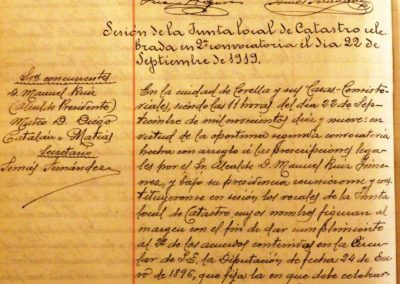 Sesión de la Junta local de Catastro cele-
brada en 2ª convocatoria el dia 22 de
Septiembre de 1919.
Sres concurrentes
D. Manuel Ruiz
(Alcalde Presidente)
Mateo D. Diego
Catalán y Matías
Secretario
Tomás Fernández
En la ciudad de Corella y sus Casas-Consisto-
riales, siendo las 11 horas del dia 22 de Sep-
tiembre de mil novecientos diez y nueve: en
virtud de la oportuna segunda convocatoria
hecha con arreglo a las prescripciones lega-
les por el Sr. Alcalde D. Manuel Ruiz Jime-
nez, y bajo su presidencia reuniéronse y cons-
tituyéronse en sesión los vocales de la Junta
local de Catastro cuyos nombres figuran al
margen con el fin de dar cumplimiento
al de los acuerdos contenidos en la Circu-
lar de S.E. la Diputación de fecha 24 de Ene-
ro de 1896, que fija la en que debe celebrar